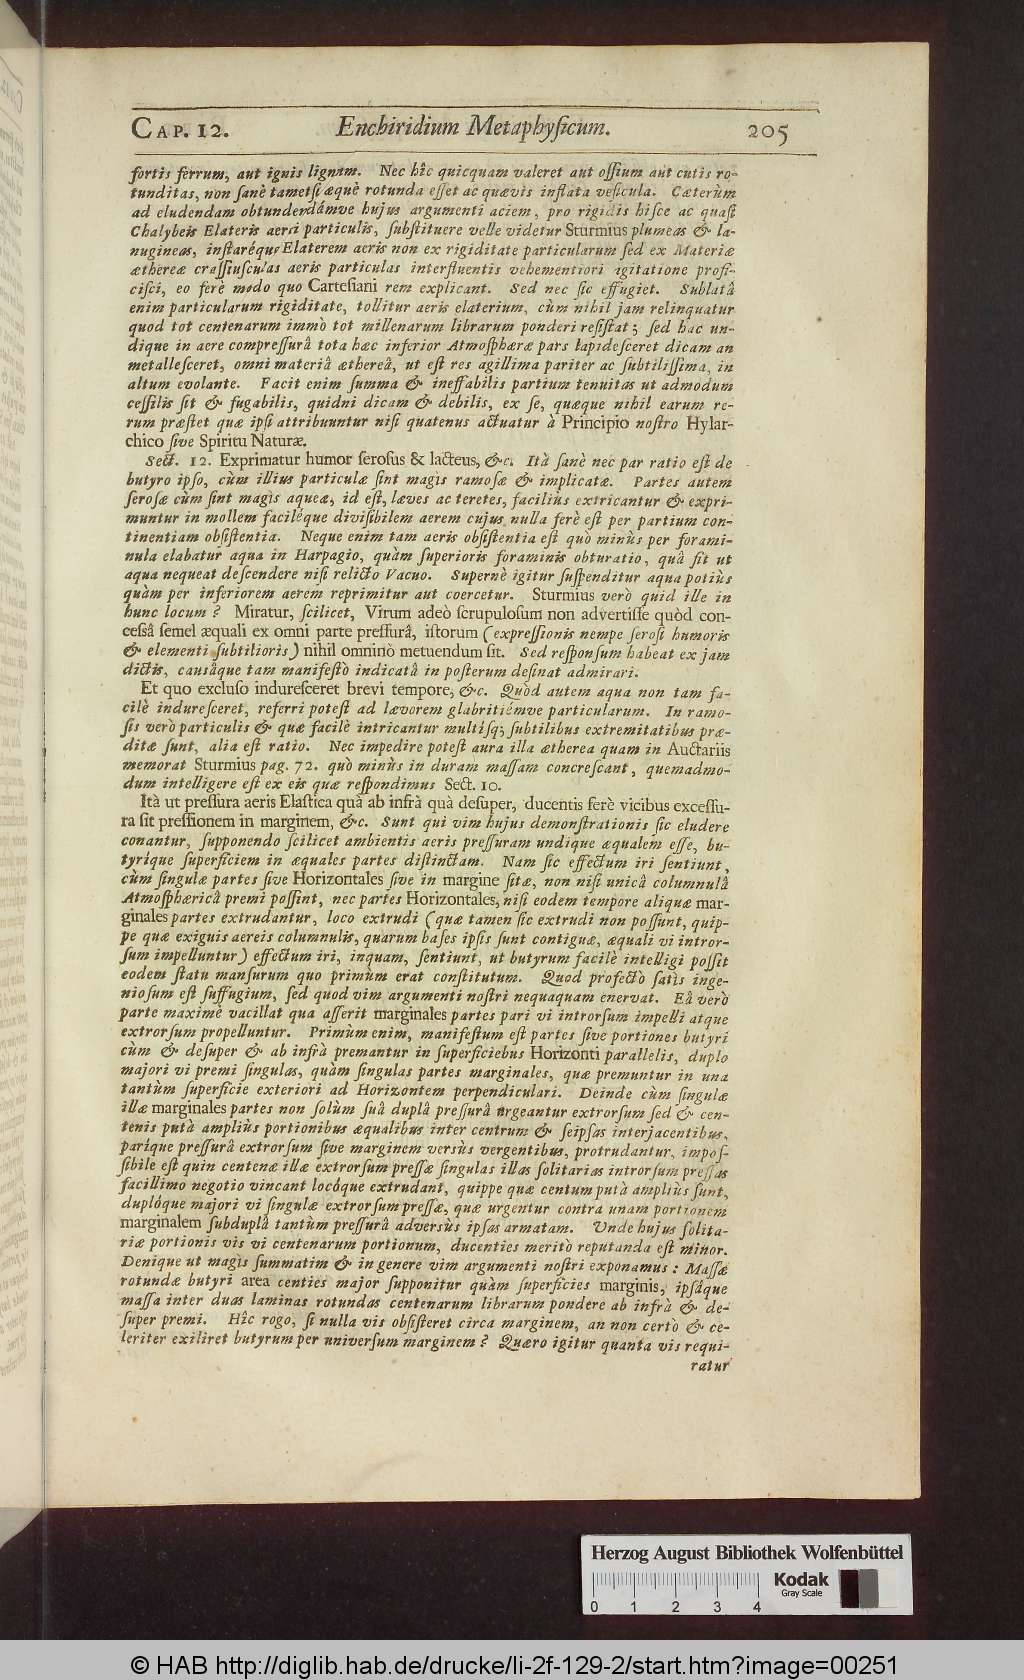 CAP. 12. Enchiridium Metaphyſicum. 205
fortis ferrum, aut ignis lignum. Nec hîc quicquam valeret aut oſſium aut cutis ro-
tunditas, non ſanè tametſi æquè rotunda eſſet ac quævis inflata veſicula. Cæterùm
ad eludendam obtundendámve hujus argumenti aciem, pro rigidis hiſce ac quaſi
Chalybeis Elateris aerei particulis, ſubſtituere velle videtur Sturmius plumeas & la-
nugineas, inſtaréque Elaterem aeris non ex rigiditate particularum ſed ex Materiæ
æthereæ craſſiuſculas aeris particulas interfluentis vehementiori agitatione profi-
ciſci, eo ferè modo quo Carteſiani rem explicant. Sed nec ſic effugiet. Sublatâ
enim particularum rigiditate, tollitur aeris elaterium, cùm nihil jam relinquatur
quod tot centenarum immò tot millenarum librarum ponderi reſiſtat; ſed hac un-
dique in aere compreſſurâ tota hæc inferior Atmoſphæræ pars lapideſceret dicam an
metalleſceret, omni materiâ æthereâ, ut eſt res agillima pariter ac ſubtiliſſima, in
altum evolante. Facit enim ſumma & ineffabilis partium tenuitas ut admodum
ceſſilis ſit & fugabilis, quidni dicam & debilis, ex ſe, quæque nihil earum re-
rum præſtet quæ ipſi attribuuntur niſi quatenus actuatur à Principio noſtro Hylar-
chico ſive Spiritu Naturæ.
Sect. 12. Exprimatur humor ſeroſus & lacteus, &c. Ità ſanè nec par ratio eſt de
butyro ipſo, cùm illius particulæ ſint magìs ramoſæ & implicatæ. Partes autem
ſeroſæ cùm ſint magìs aqueæ, id eſt, læves ac teretes, faciliùs extricantur & expri-
muntur in mollem faciléque diviſibilem aerem cujus nulla ferè eſt per partium con-
tinentiam obſiſtentia. Neque enim tam aeris obſiſtentia eſt quò minùs per forami-
nula elabatur aqua in Harpagio, quàm ſuperioris foraminis obturatio, quâ fit ut
aqua nequeat deſcendere niſi relicto Vacuo. Supernè igitur ſuſpenditur aqua potiùs
quàm per inferiorem aerem reprimitur aut coercetur. Sturmius verò quid ille in
hunc locum? Miratur, ſcilicet, Virum adeò ſcrupuloſum non advertiſſe quòd con-
ceſſâ ſemel æquali ex omni parte preſſurâ, iſtorum (expreſſionis nempe ſeroſi humoris
& elementi ſubtilioris) nihil omninò metuendum ſit. Sed reſponſum habeat ex jam
dictis, causâque tam manifeſtò indicatâ in poſterum deſinat admirari.
Et quo excluſo indureſceret brevi tempore, &c. Quòd autem aqua non tam fa-
cilè indureſceret, referri poteſt ad lævorem glabritiémve particularum. In ramo-
ſis verò particulis & quæ facilè intricantur multíſq; ſubtilibus extremitatibus præ-
ditæ ſunt, alia eſt ratio. Nec impedire poteſt aura illa ætherea quam in Auctariis
memorat Sturmius pag. 72. quò minùs in duram maſſam concreſcant, quemadmo-
dum intelligere eſt ex eis quæ reſpondimus Sect. 10.
Ità ut preſſura aeris Elaſtica quà ab infrà quà deſuper, ducentis ferè vicibus exceſſu-
ra ſit preſſionem in marginem, &c. Sunt qui vim hujus demonſtrationis ſic eludere
conantur, ſupponendo ſcilicet ambientis aeris preſſuram undique æqualem eſſe, bu-
tyríque ſuperficiem in æquales partes diſtinctam. Nam ſic effectum iri ſentiunt,
cùm ſingulæ partes ſive Horizontales ſive in margine ſitæ, non niſi unicâ columnulâ
Atmoſphæricâ premi poſſint, nec partes Horizontales, niſi eodem tempore aliquæ mar-
ginales partes extrudantur, loco extrudi (quæ tamen ſic extrudi non poſſunt, quip-
pe quæ exiguis aereis columnulis, quarum baſes ipſis ſunt contiguæ, æquali vi intror-
ſum impelluntur) effectum iri, inquam, ſentiunt, ut butyrum facilè intelligi poſſit
eodem ſtatu manſurum quo primùm erat conſtitutum. Quod profectò ſatìs inge-
nioſum eſt ſuffugium, ſed quod vim argumenti noſtri nequaquam enervat. Eâ verò
parte maximè vacillat qua aſſerit marginales partes pari vi introrſum impelli atque
extrorſum propelluntur. Primùm enim, manifeſtum eſt partes ſive portiones butyri
cùm & deſuper & ab infrà premantur in ſuperficiebus Horizonti parallelis, duplo
majori vi premi ſingulas, quàm ſingulas partes marginales, quæ premuntur in una
tantùm ſuperficie exteriori ad Horizontem perpendiculari. Deinde cùm ſingulæ
illæ marginales partes non ſolùm ſuâ duplâ preſſurâ urgeantur extrorſum ſed & cen-
tenis putà ampliùs portionibus æqualibus inter centrum & ſeipſas interjacentibus,
paríque preſſurâ extrorſum ſive marginem versùs vergentibus, protrudantur, impoſ-
ſibile eſt quin centenæ illæ extrorſum preſſæ ſingulas illas ſolitarias introrſum preſſas
facillimo negotio vincant locóque extrudant, quippe quæ centum putà ampliùs ſunt,
duplóque majori vi ſingulæ extrorſum preſſæ, quæ urgentur contra unam portionem
marginalem ſubduplâ tantùm preſſurâ adversùs ipſas armatam. Unde hujus ſolita-
riæ portionis vis vi centenarum portionum, ducenties meritò reputanda eſt minor.
Denique ut magìs ſummatim & in genere vim argumenti noſtri exponamus: Maſſæ
rotundæ butyri area centies major ſupponitur quàm ſuperficies marginis, ipſáque
maſſa inter duas laminas rotundas centenarum librarum pondere ab infrà & de-
ſuper premi. Hîc rogo, ſi nulla vis obſiſteret circa marginem, an non certò & ce-
leriter exiliret butyrum per univerſum marginem? Quæro igitur quanta vis requi-
ratur
Herzog August Bibliothek Wolfenbüttel
Kodak
Gray Scale
0 1 2 3 4
© HAB http://diglib.hab.de/drucke/li-2f-129-2/start.htm?image=00251